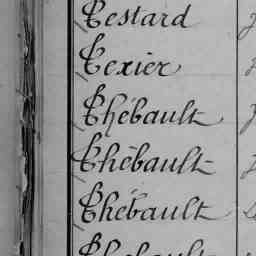 Testard
Texier
Thébault
Thébault
Thébault